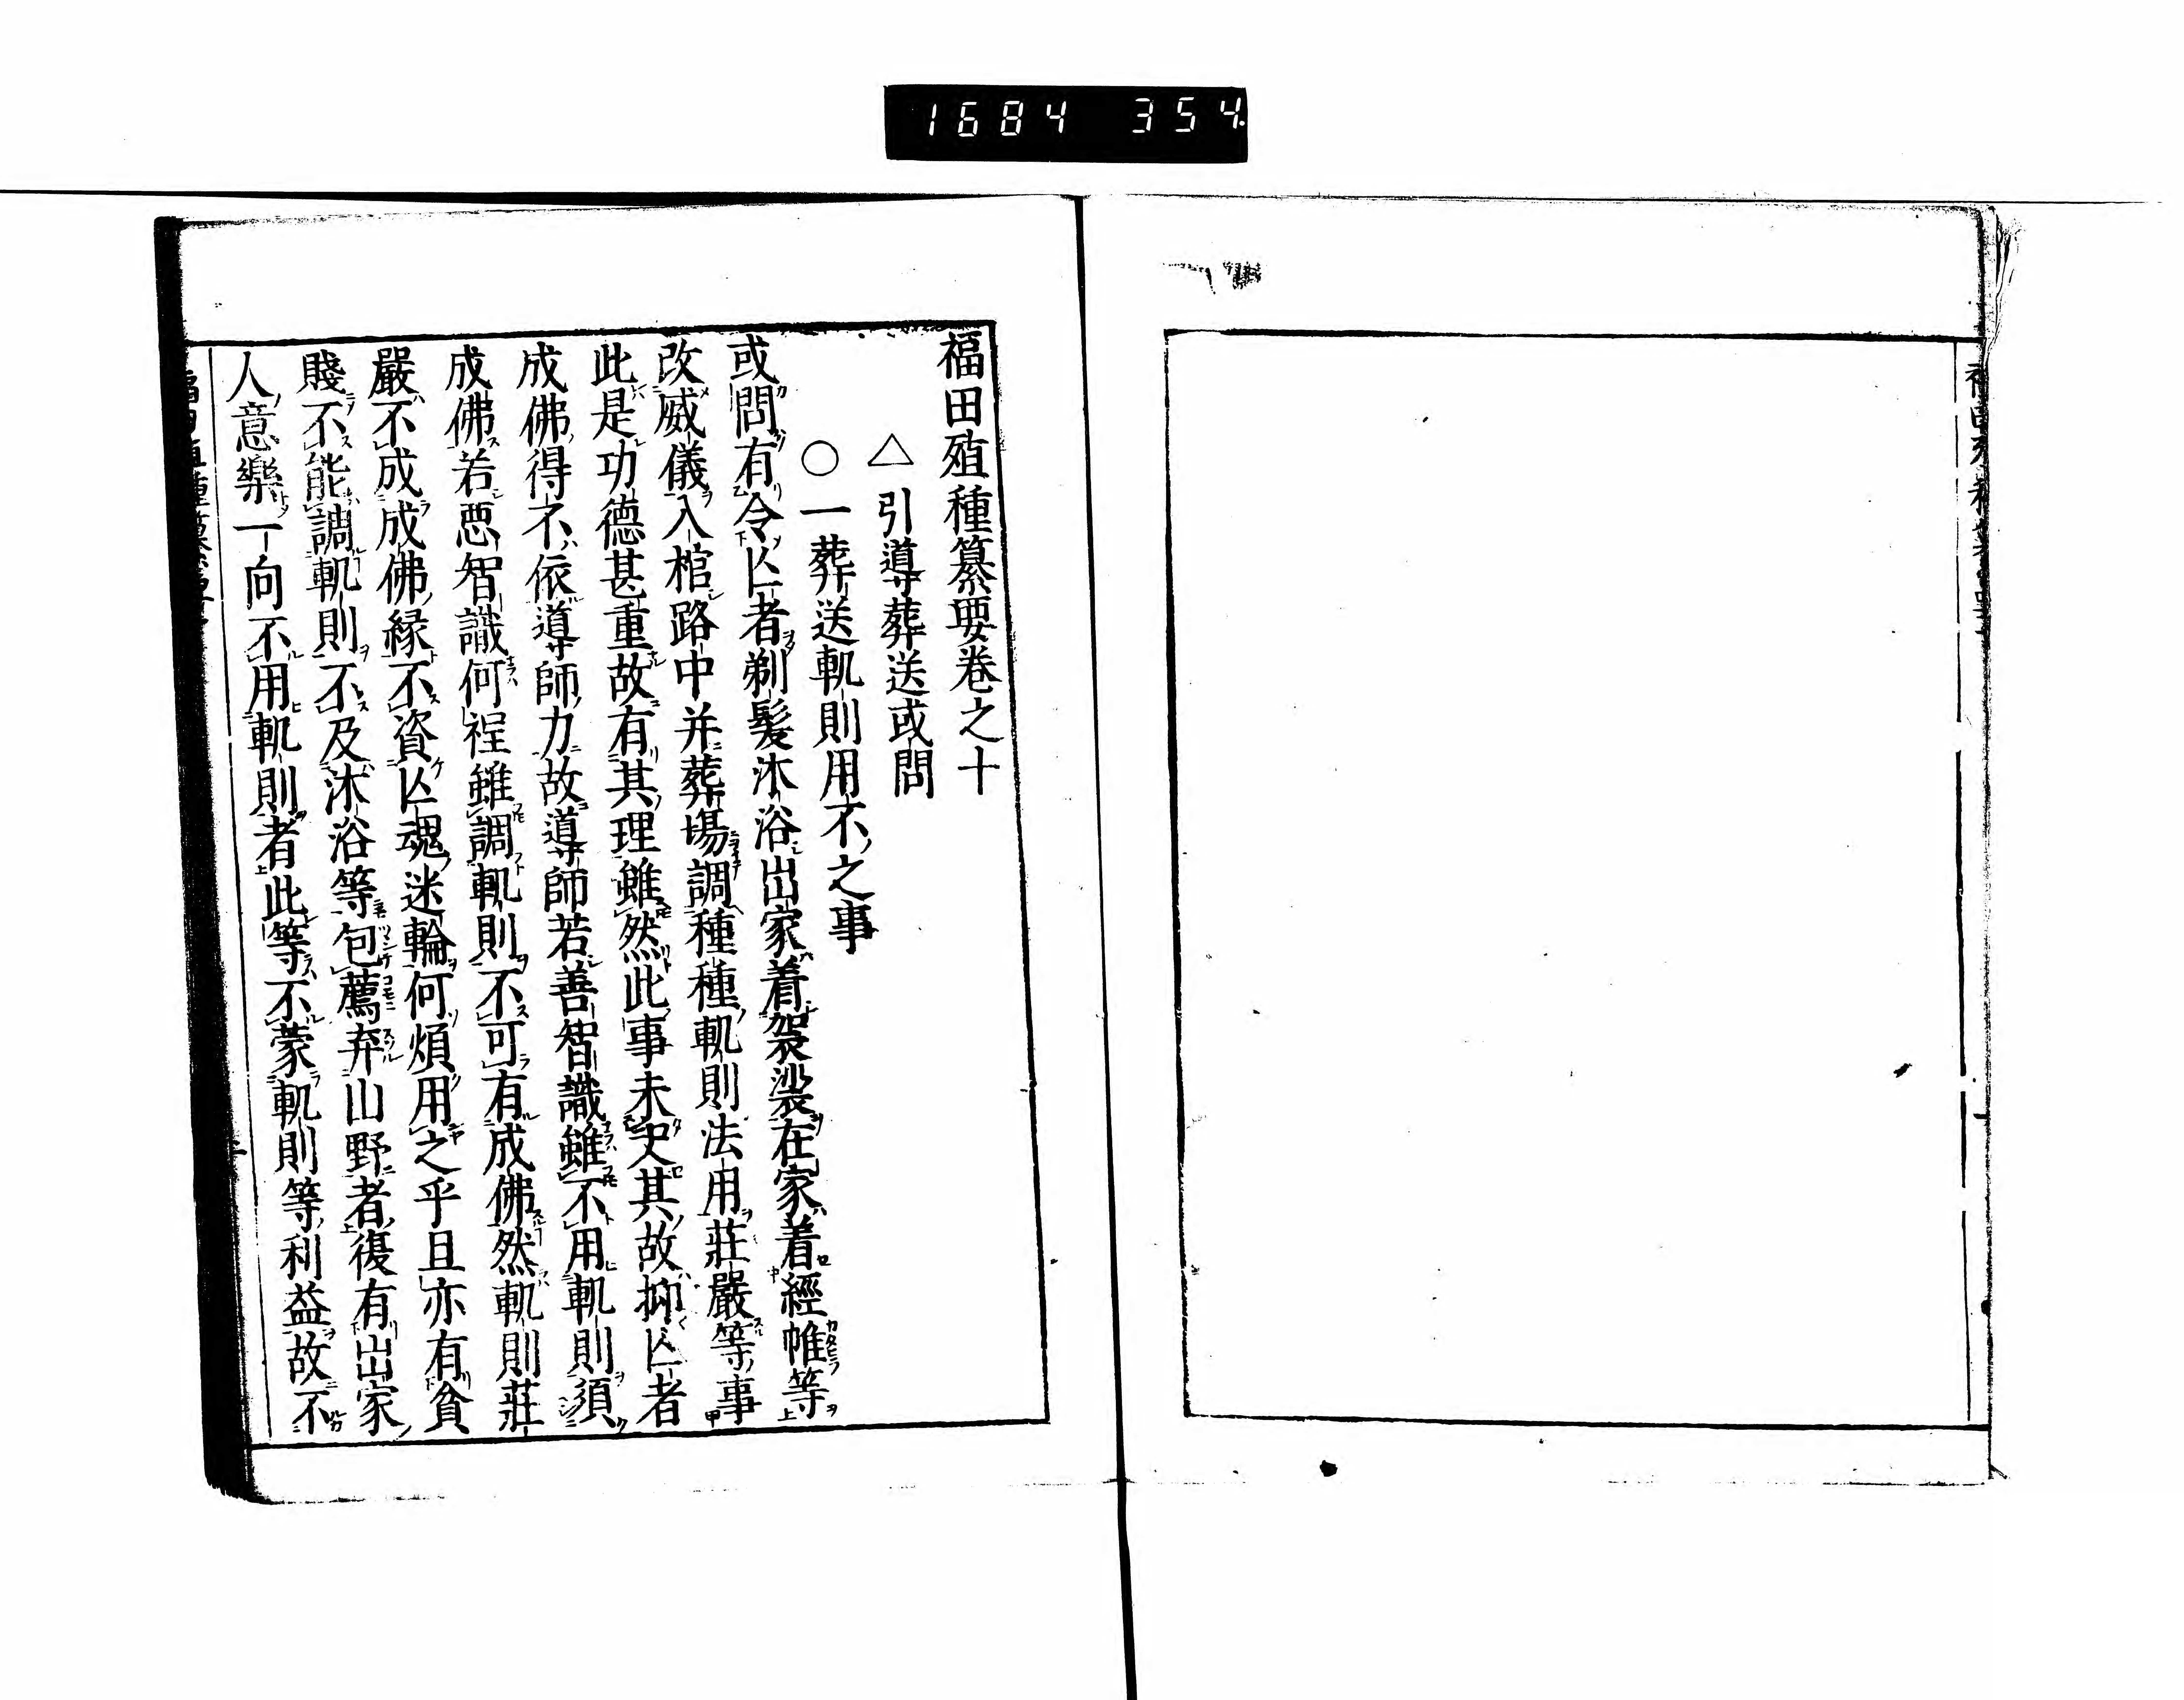 1684 354
福田殖種纂要卷之十
△引導葬送或問
○一葬送軌則用不之事
或問有令亾者剃髮沐浴出家着袈裟在家着經帷等
改威儀入棺路中并葬場調種種軌則法用莊嚴等事
此是功德甚重故有其理雖然此事未吏其故抑亾者
成佛得不依導師力故導師若善智識雖不用軌則須
成佛若惡智識何程雖調軌則不可有成佛然軌則莊
嚴不成成佛緣不資亾魂迷輪何煩用之乎且亦有貧
賤不能調軌則不及沐浴等包薦弃山野者復有出家
人意樂一向不用軌則者此等不蒙軌則等利益故不